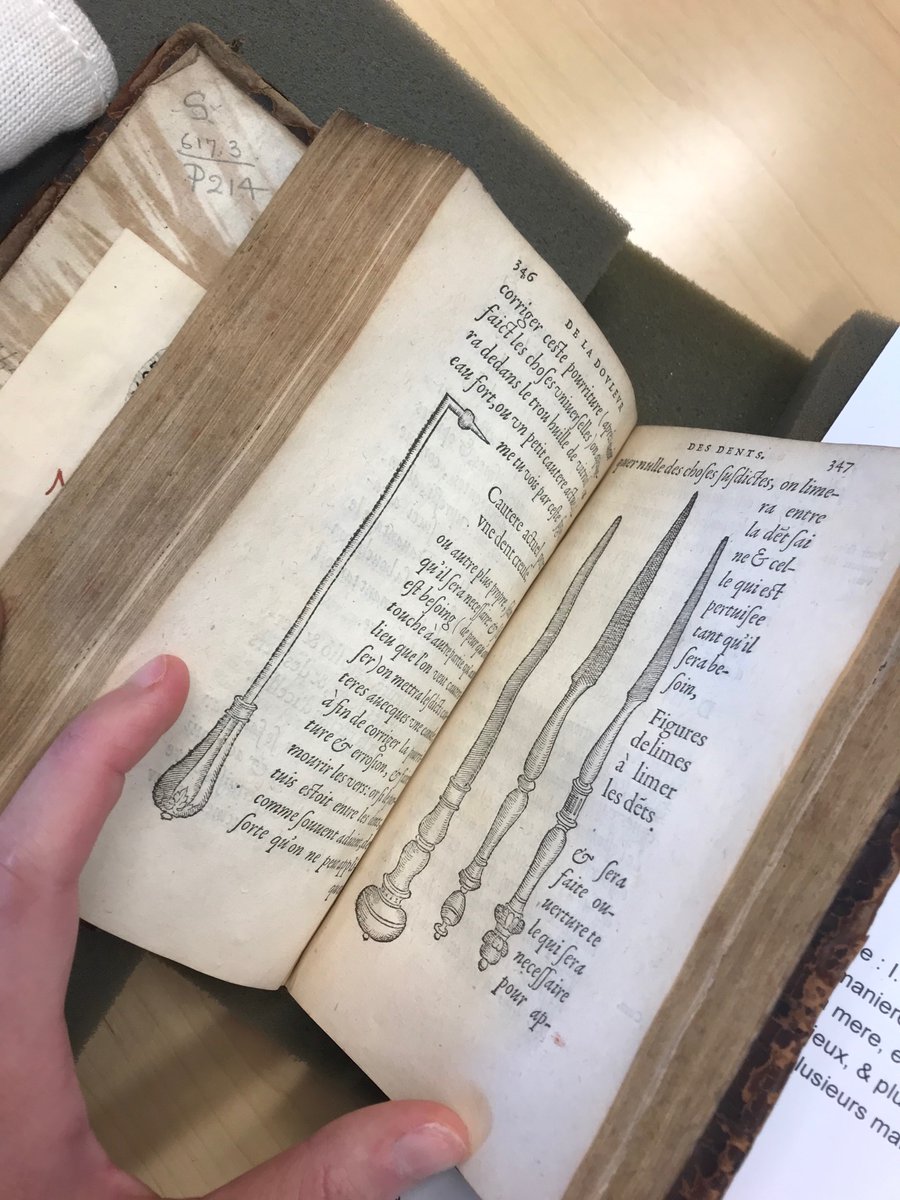 S
617.3
P214
346
DE LA DOVLEVR
corriger ceste pourriture (apres
faict les choses vniuerselles) on
ra dedans le trou huille de
eau fort, ou vn petit cautere actuel
me tu vois par ceste
Cautere actuel
vne dent creuse
ou autre plus propre,
qu'il sera necessaire. &
est besoing
touche à autre partie
lieu que l'on veut
ser) on mettra
teres auecques vne
à fin de corriger la
ture & erosion, &
mourir les vers: on
tuis estoit entre les
comme souuent aduient
sorte qu'on ne peut
DES DENTS.
347
quer nulle des choses susdictes, on lime-
ra entre
la dẽt sai
ne & cel-
le qui est
pertuisee
tant qu'il
sera be-
soin,
Figures
de limes
à limer
les dẽts.
& sera
faite ou-
uerture te
le qui sera
necessaire
pour ap-
maniere
mere, e
ieux, & plu
lusieurs ma